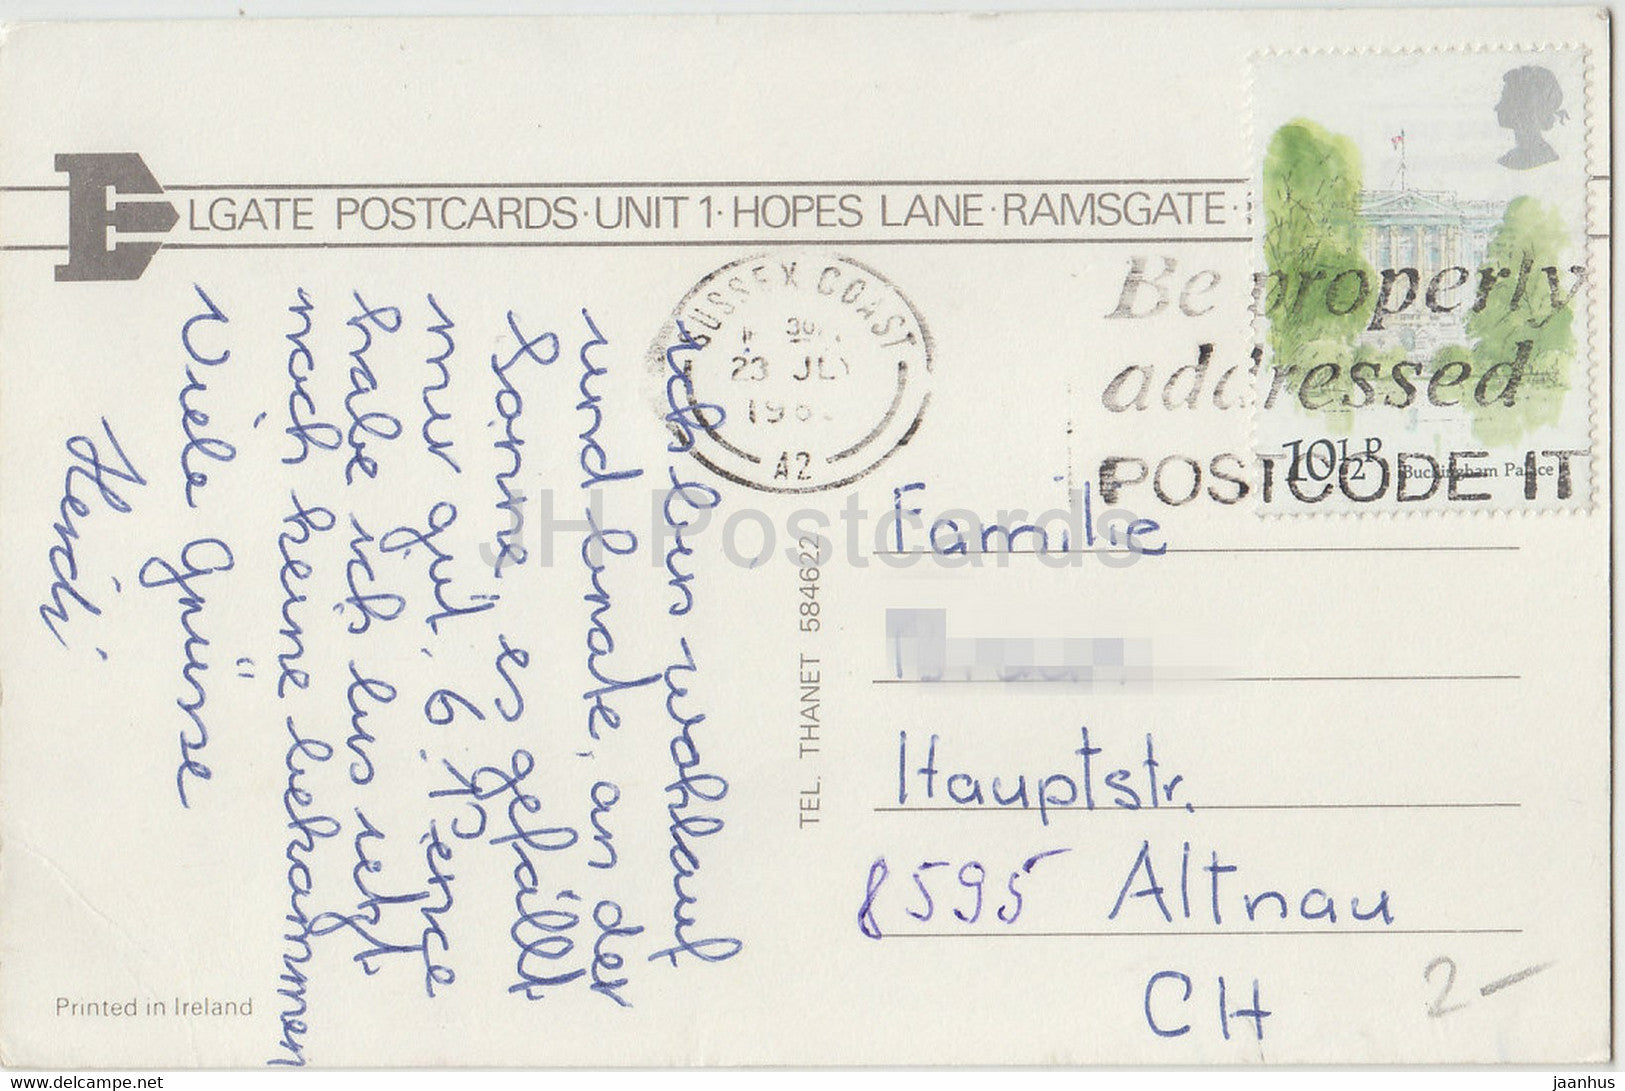 ELGATE POSTCARDS · UNIT 1 · HOPES LANE · RAMSGATE ·
SUSSEX COAST
23 JLY
A2
Be properly
addressed
POSTCODE IT
10½P Buckingham Palace
ich bin wohlauf
und braute, an der
Sonne, es gefällt
mir gut. 6 Pence
habe ich bis jetzt
noch keine bekommen
Viele Grüsse
Heidi
TEL. THANET 584622
Familie
Hauptstr.
8595 Altnau
CH
2-
Printed in Ireland
JH Postcards
www.delcampe.net
jaanhus